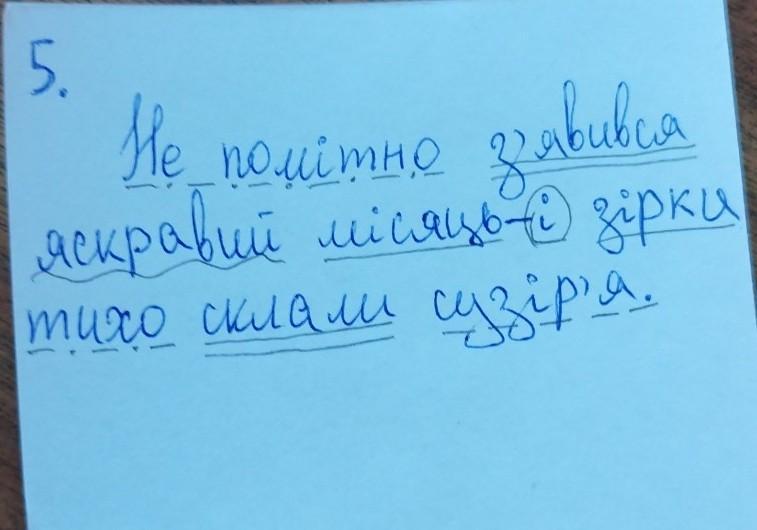 5.
Не помітно з'явився
яскравий місяць-і зірки
тихо склали сузір'я.